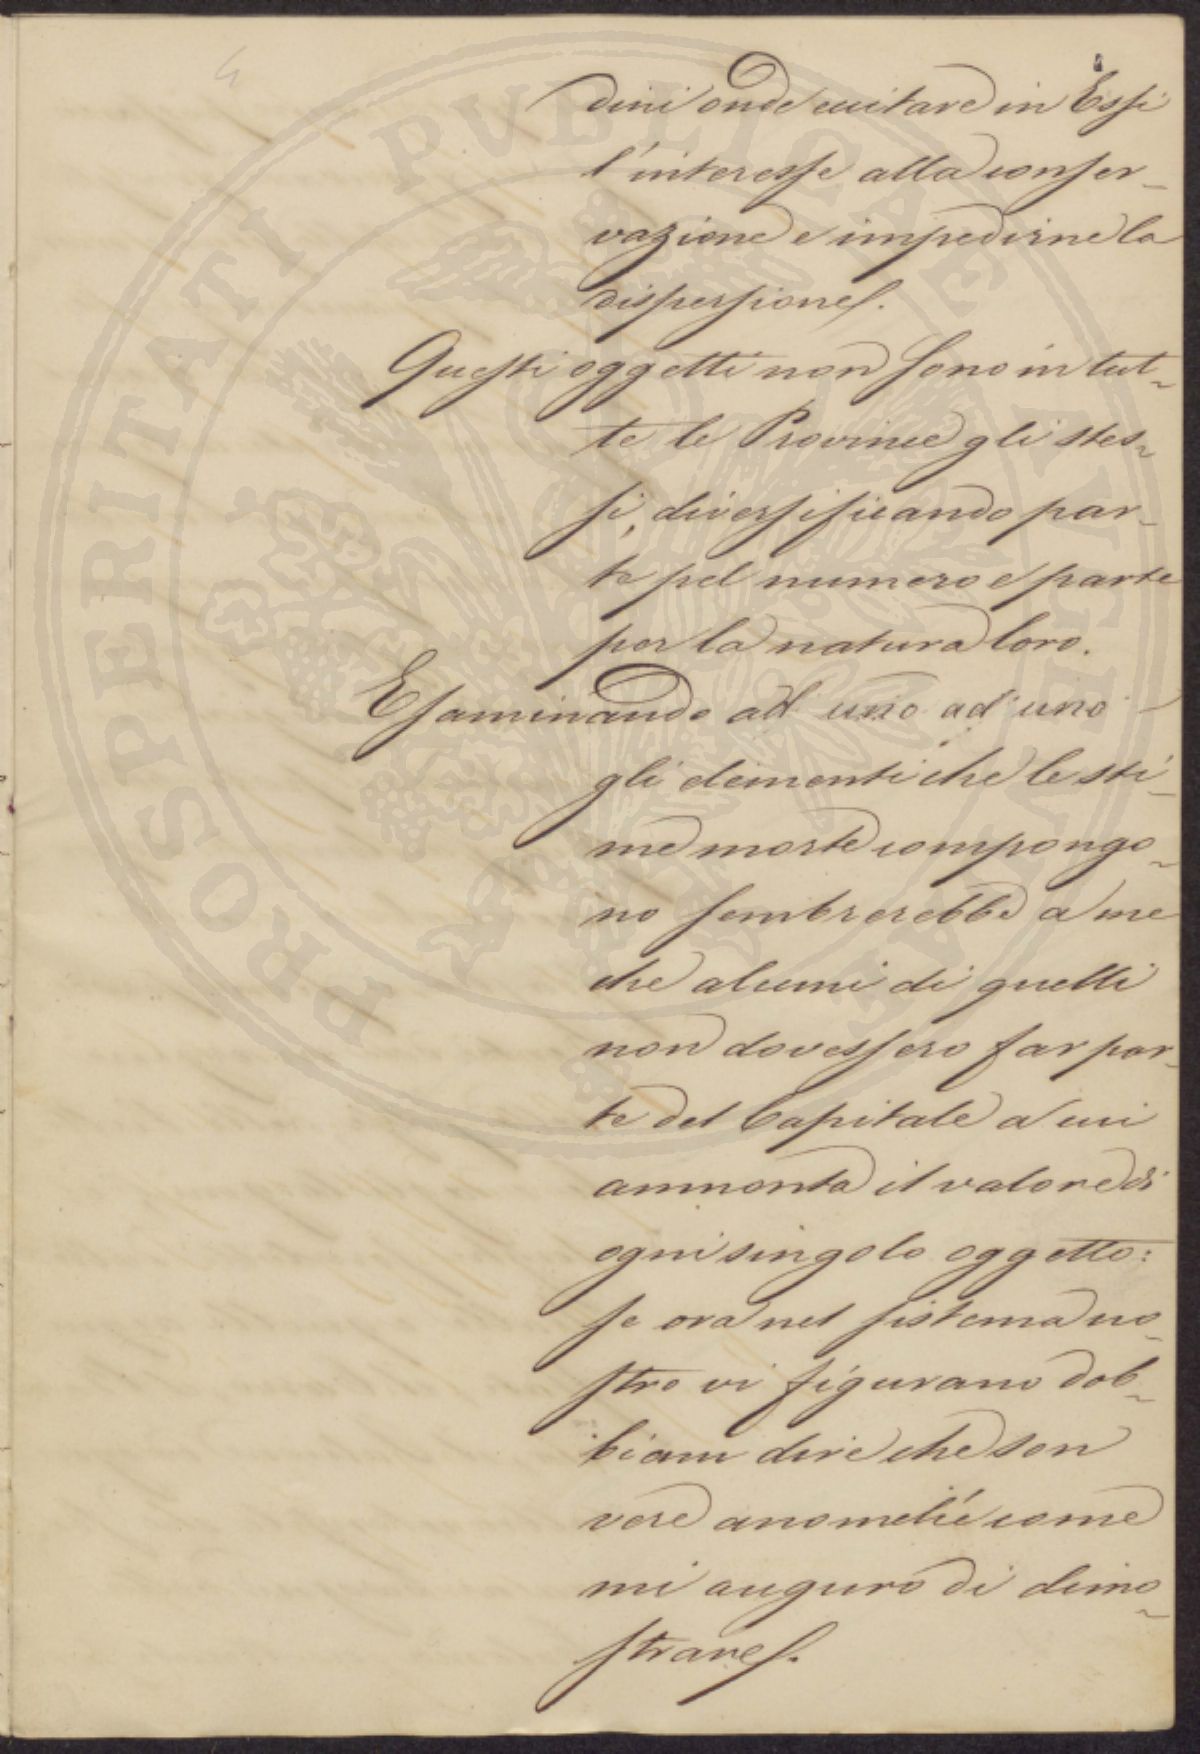 dini onde eccitare in Essi
l'interesse alla conser-
vazione e impedirne la
dispersione.
Questi oggetti non sono in tut-
te le Provincie gli stes-
si, diversificando par-
te pel numero e parte
per la natura loro.
Esaminando ad uno ad uno
gli elementi che le sti-
me morte compongo-
no sembrerebbe a me
che alcuni di quelli
non dovessero far par-
te del Capitale a cui
ammonta il valore di
ogni singolo oggetto:
se ora nel sistema no-
stro vi figurano dob-
biam dire che son
vere anomelie come
mi auguro di dimo-
strare.
PROSPERITATI PVBLICAE AVGENDAE